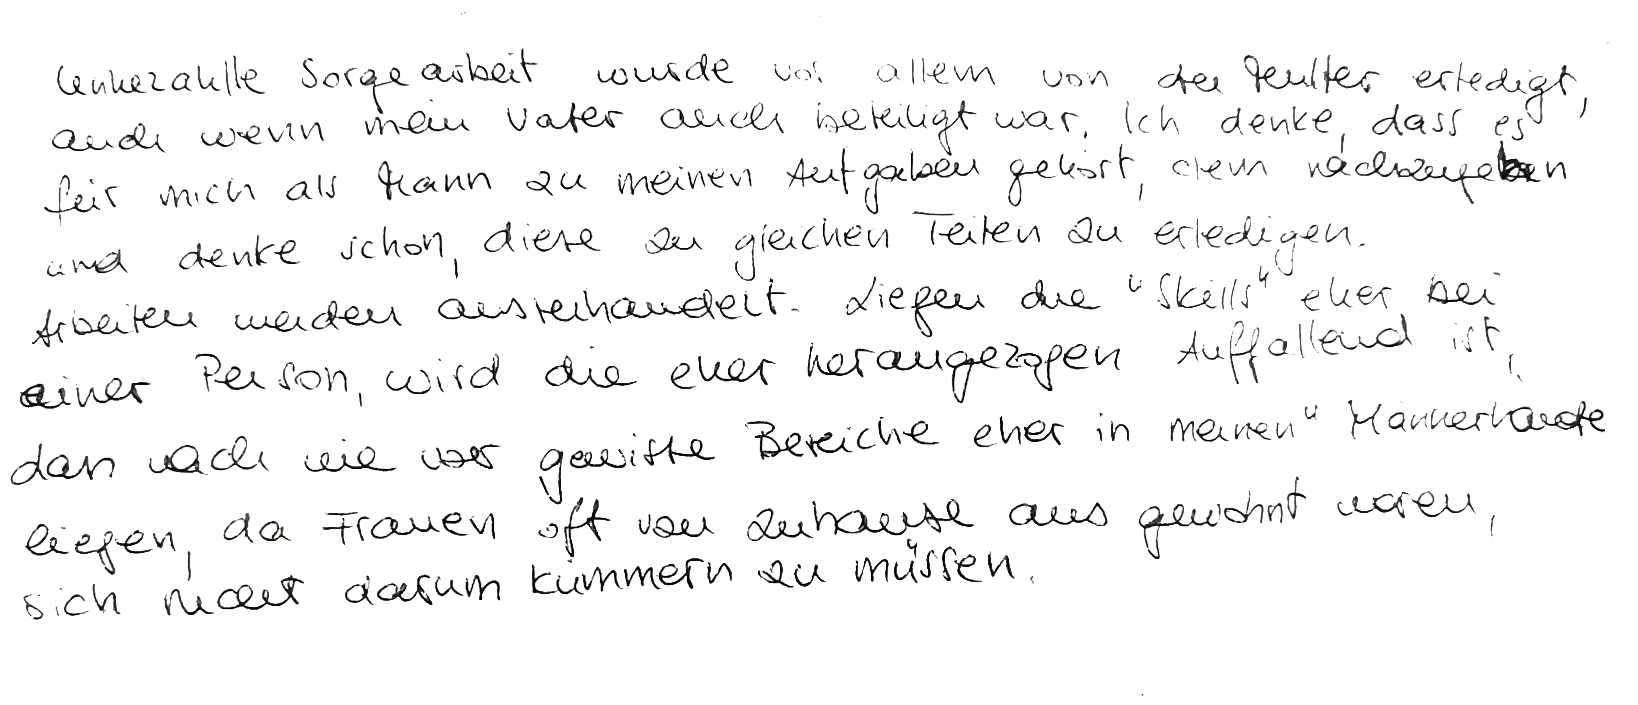 Unbezahlte Sorgearbeit wurde vor allem von der Mutter erledigt,
auch wenn mein Vater auch beteiligt war. Ich denke, dass es
für mich als Mann zu meinen Aufgaben gehört, dem nachzugehen
und denke schon, diese zu gleichen Teilen zu erledigen.
Arbeiten werden ausverhandelt. Liegen die "Skills" eher bei
einer Person, wird die eher herangezogen Auffallend ist,
dass nach wie vor gewisse Bereiche eher in meinen "Männerhände
liegen, da Frauen oft von zuhause aus gewohnt waren,
sich nicht darum kümmern zu müssen.